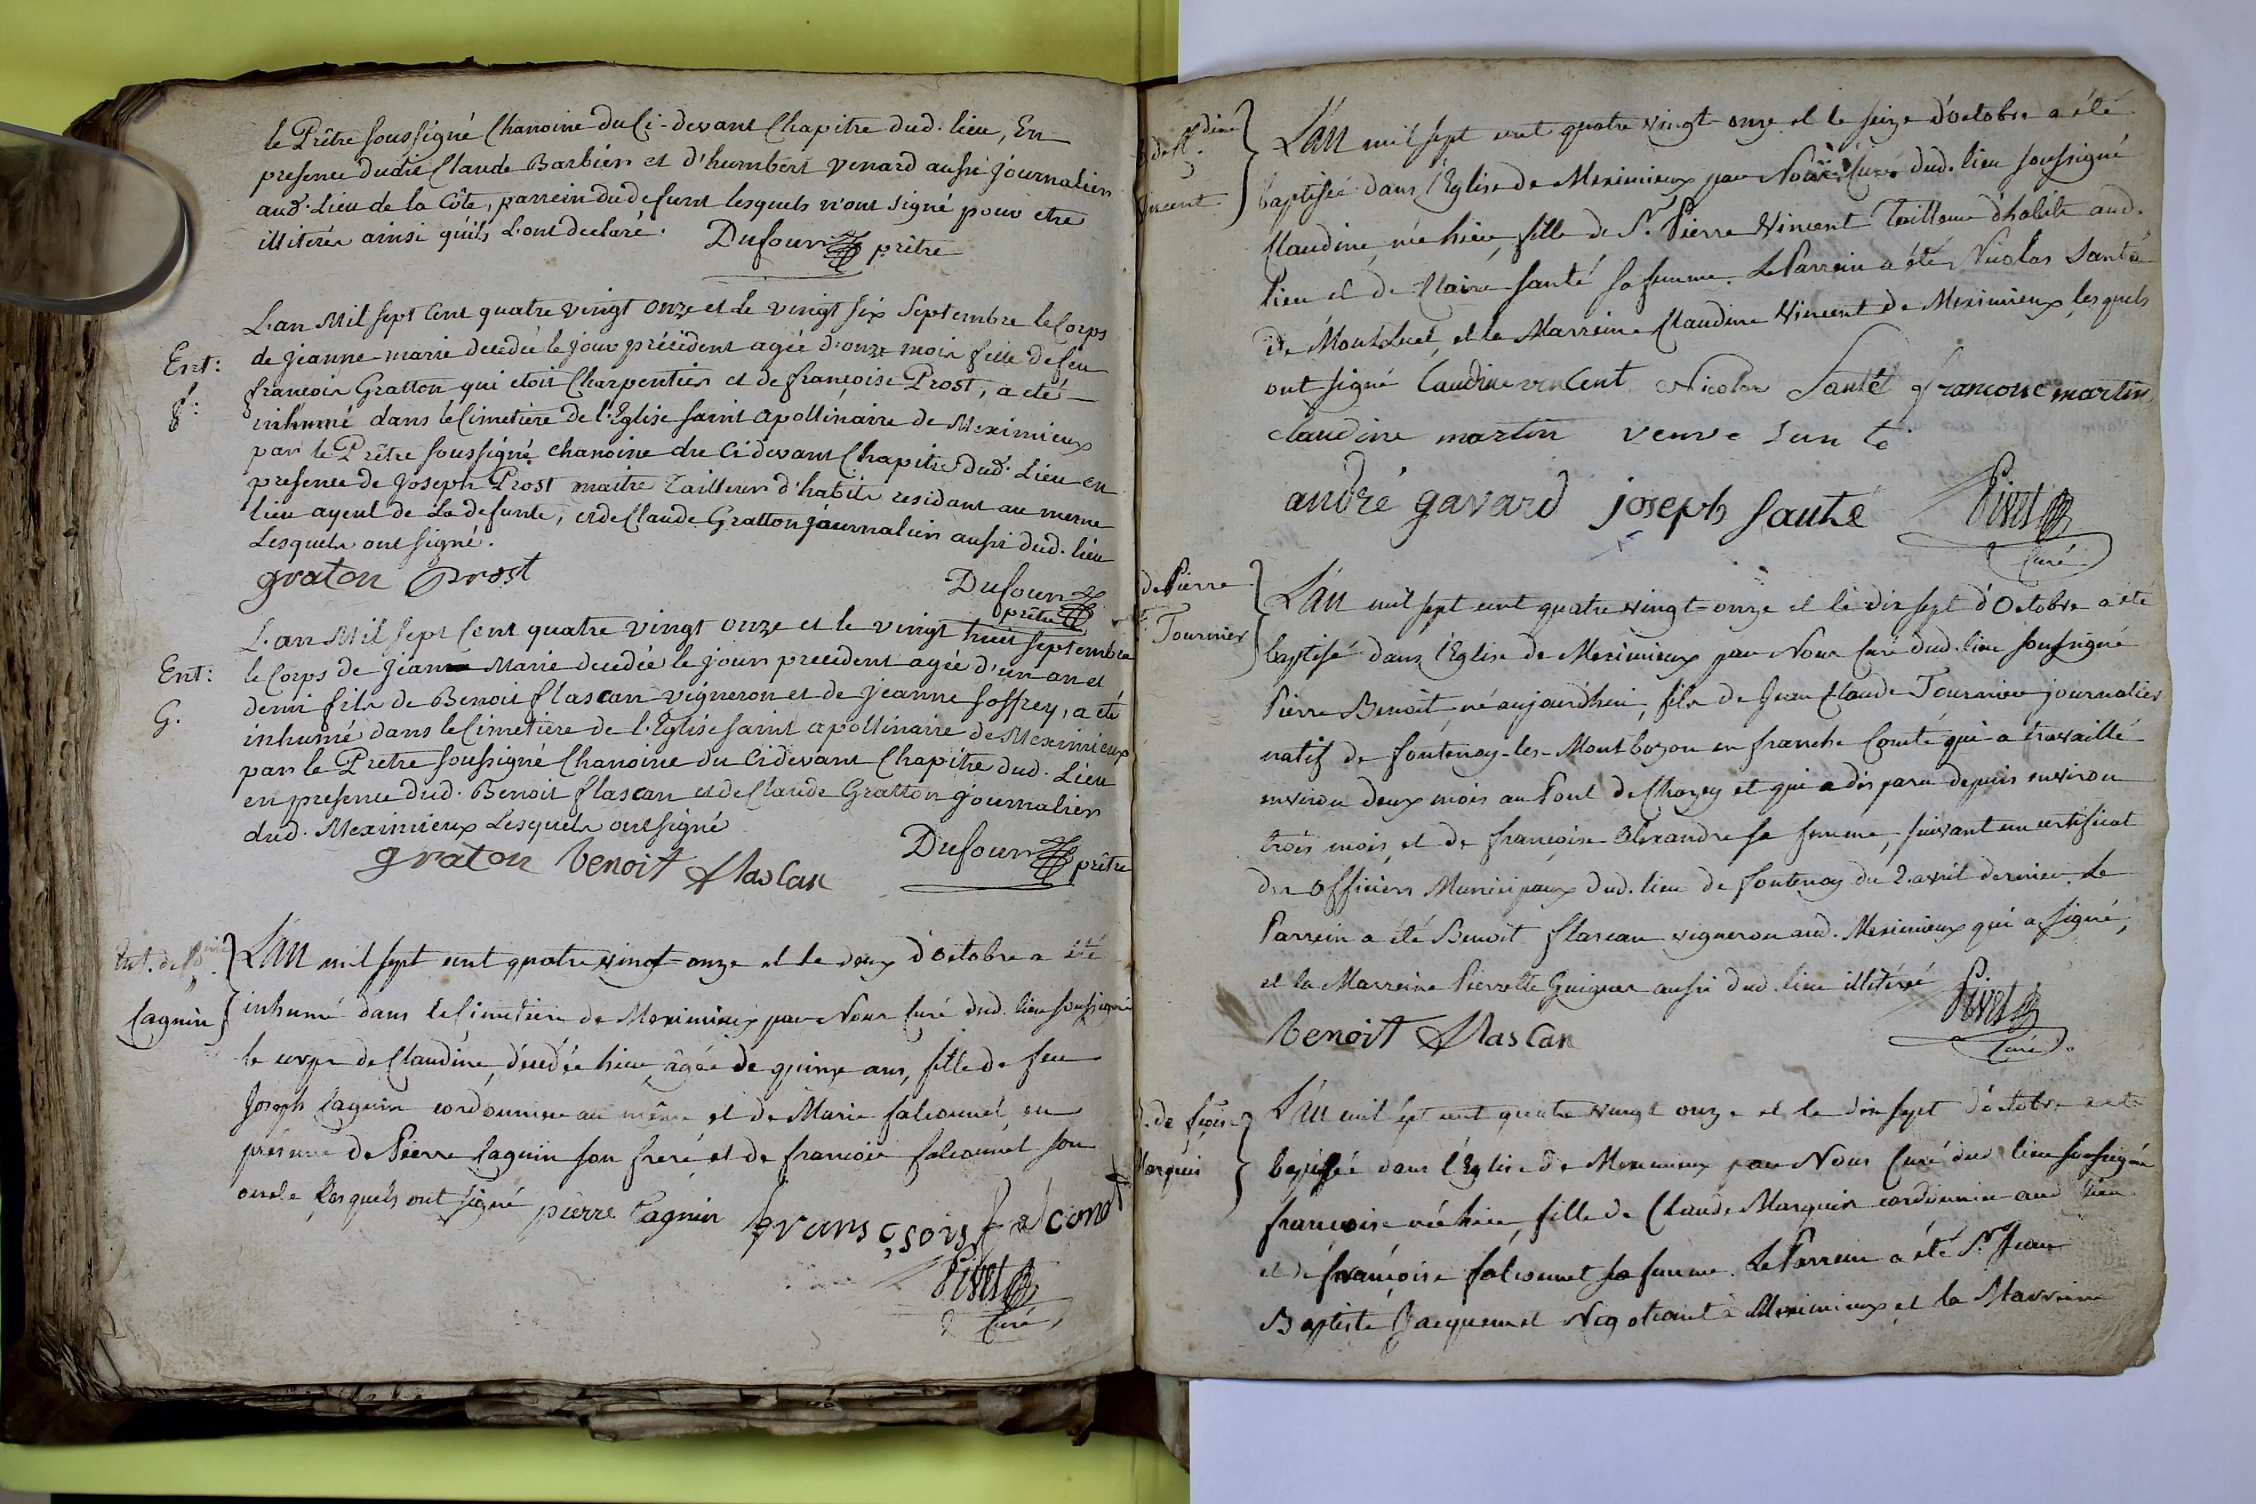 le Prêtre soussigné Chanoine du Ci-devant Chapitre dud. lieu, En
presence dudit Claude Barbier et d'humbert venard aussi journalier
aud. Lieu de la Côte, parrein du defunt lesquels n'ont signé pour etre
illiterés ainsi qu'ils L'ont declaré. Dufour prêtre
L'an Mil sept Cent quatre vingt onze et le vingt six Septembre le Corps
Ent: de jeanne-marie decedée le jour précédent agée d'onze mois fille de feu
f: françois Gratton qui etoit Charpentier et de françoise Prost, a eté
inhumé dans le Cimetiere de l'Eglise saint apollinaire de Meximieux
par le Prêtre soussigné chanoine du Ci devant Chapitre dud. Lieu en
presence de joseph Prost maitre Tailleur d'habits residant au meme
lieu ayeul de La defunte, et de Claude Gratton journalier aussi dud. lieu
Lesquels ont signé.
graton Prost
Dufour
prêtre
L'an Mil sept Cent quatre vingt onze et le vingt huit septembre
Ent: le Corps de jeanne Marie decedée le jour precedent agée d'un an et
G. demi fils de Benoit flascan vigneron et de jeanne soffrey, a eté
inhumé dans le Cimetiere de l'Eglise saint apollinaire de Meximieux
par le Pretre soussigné Chanoine du Cidevant Chapitre dud. Lieu
en presence dud. Benoit flascan et de Claude Gratton journalier
dud. Meximieux Lesquels ont signé
graton benoit flascan Dufour prêtre
L'An mil sept cent quatre vingt-onze et le deux d'octobre a été
Cagnin inhumé dans le Cimetiere de Meximieux par Nous Curé dud. lieu soussigné
le corps de Claudine, décédée hier, âgée de quinze ans, fille de feu
Joseph Cagnin cordonnier au même et de Marie falconnet, en
présence de Pierre Cagnin son frere et de francois falconnet son
oncle lesquels ont signé pierre Cagnin fransçsois falconet
Pivet
Curé
L'An mil sept cent quatre vingt-onze et le seize d'octobre a été
baptisée dans l'Eglise de Meximieux par Nous Curé dud. lieu soussigné
Claudine, née hier, fille de Sr. Pierre Vincent Tailleur d'habits aud.
lieu et de Claire Santé sa femme. Le Parrein a été Nicolas Santé
de Montluel, et la Marreine Claudine Vincent de Meximieux, lesquels
ont signé Caudine vincent Nicolas Santé francoise martin
claudine martin veuve santé
andré gavard joseph Santé Pivet
Curé
de Pierre
Tournier
L'An mil sept cent quatre vingt-onze et le dix sept d'Octobre a été
baptisé dans l'Eglise de Meximieux par Nous Curé dud. lieu soussigné
Pierre Benoit, né aujourd'hui, fils de Jean Claude Tournier journalier
natif de fontenoy-les-Montbozon en franche Comté qui a travaillé
environ deux mois au Pont de Chazey et qui a disparu depuis environ
trois mois, et de françoise Alexandre sa femme, suivant un certificat
des Officiers Municipaux dud. lieu de fontenoy du 2. avril dernier. Le
Parrein a été Benoit flascan vigneron aud. Meximieux qui a signé,
et la Marreine Pierrette Guigner aussi dud. lieu illitérée
benoit flascan Pivet
Curé
L'An mil sept cent quatre vingt onze et le dix sept d'octobre a été
baptisée dans l'Eglise de Meximieux par Nous Curé dud. lieu soussigné
françoise née hier, fille de Claude Marquis cordonnier aud. lieu
et de françoise falconnet sa femme. Le Parrein a été Sr. Jean
Baptiste Jacquemet Négotiant à Meximieux, et la Marreine